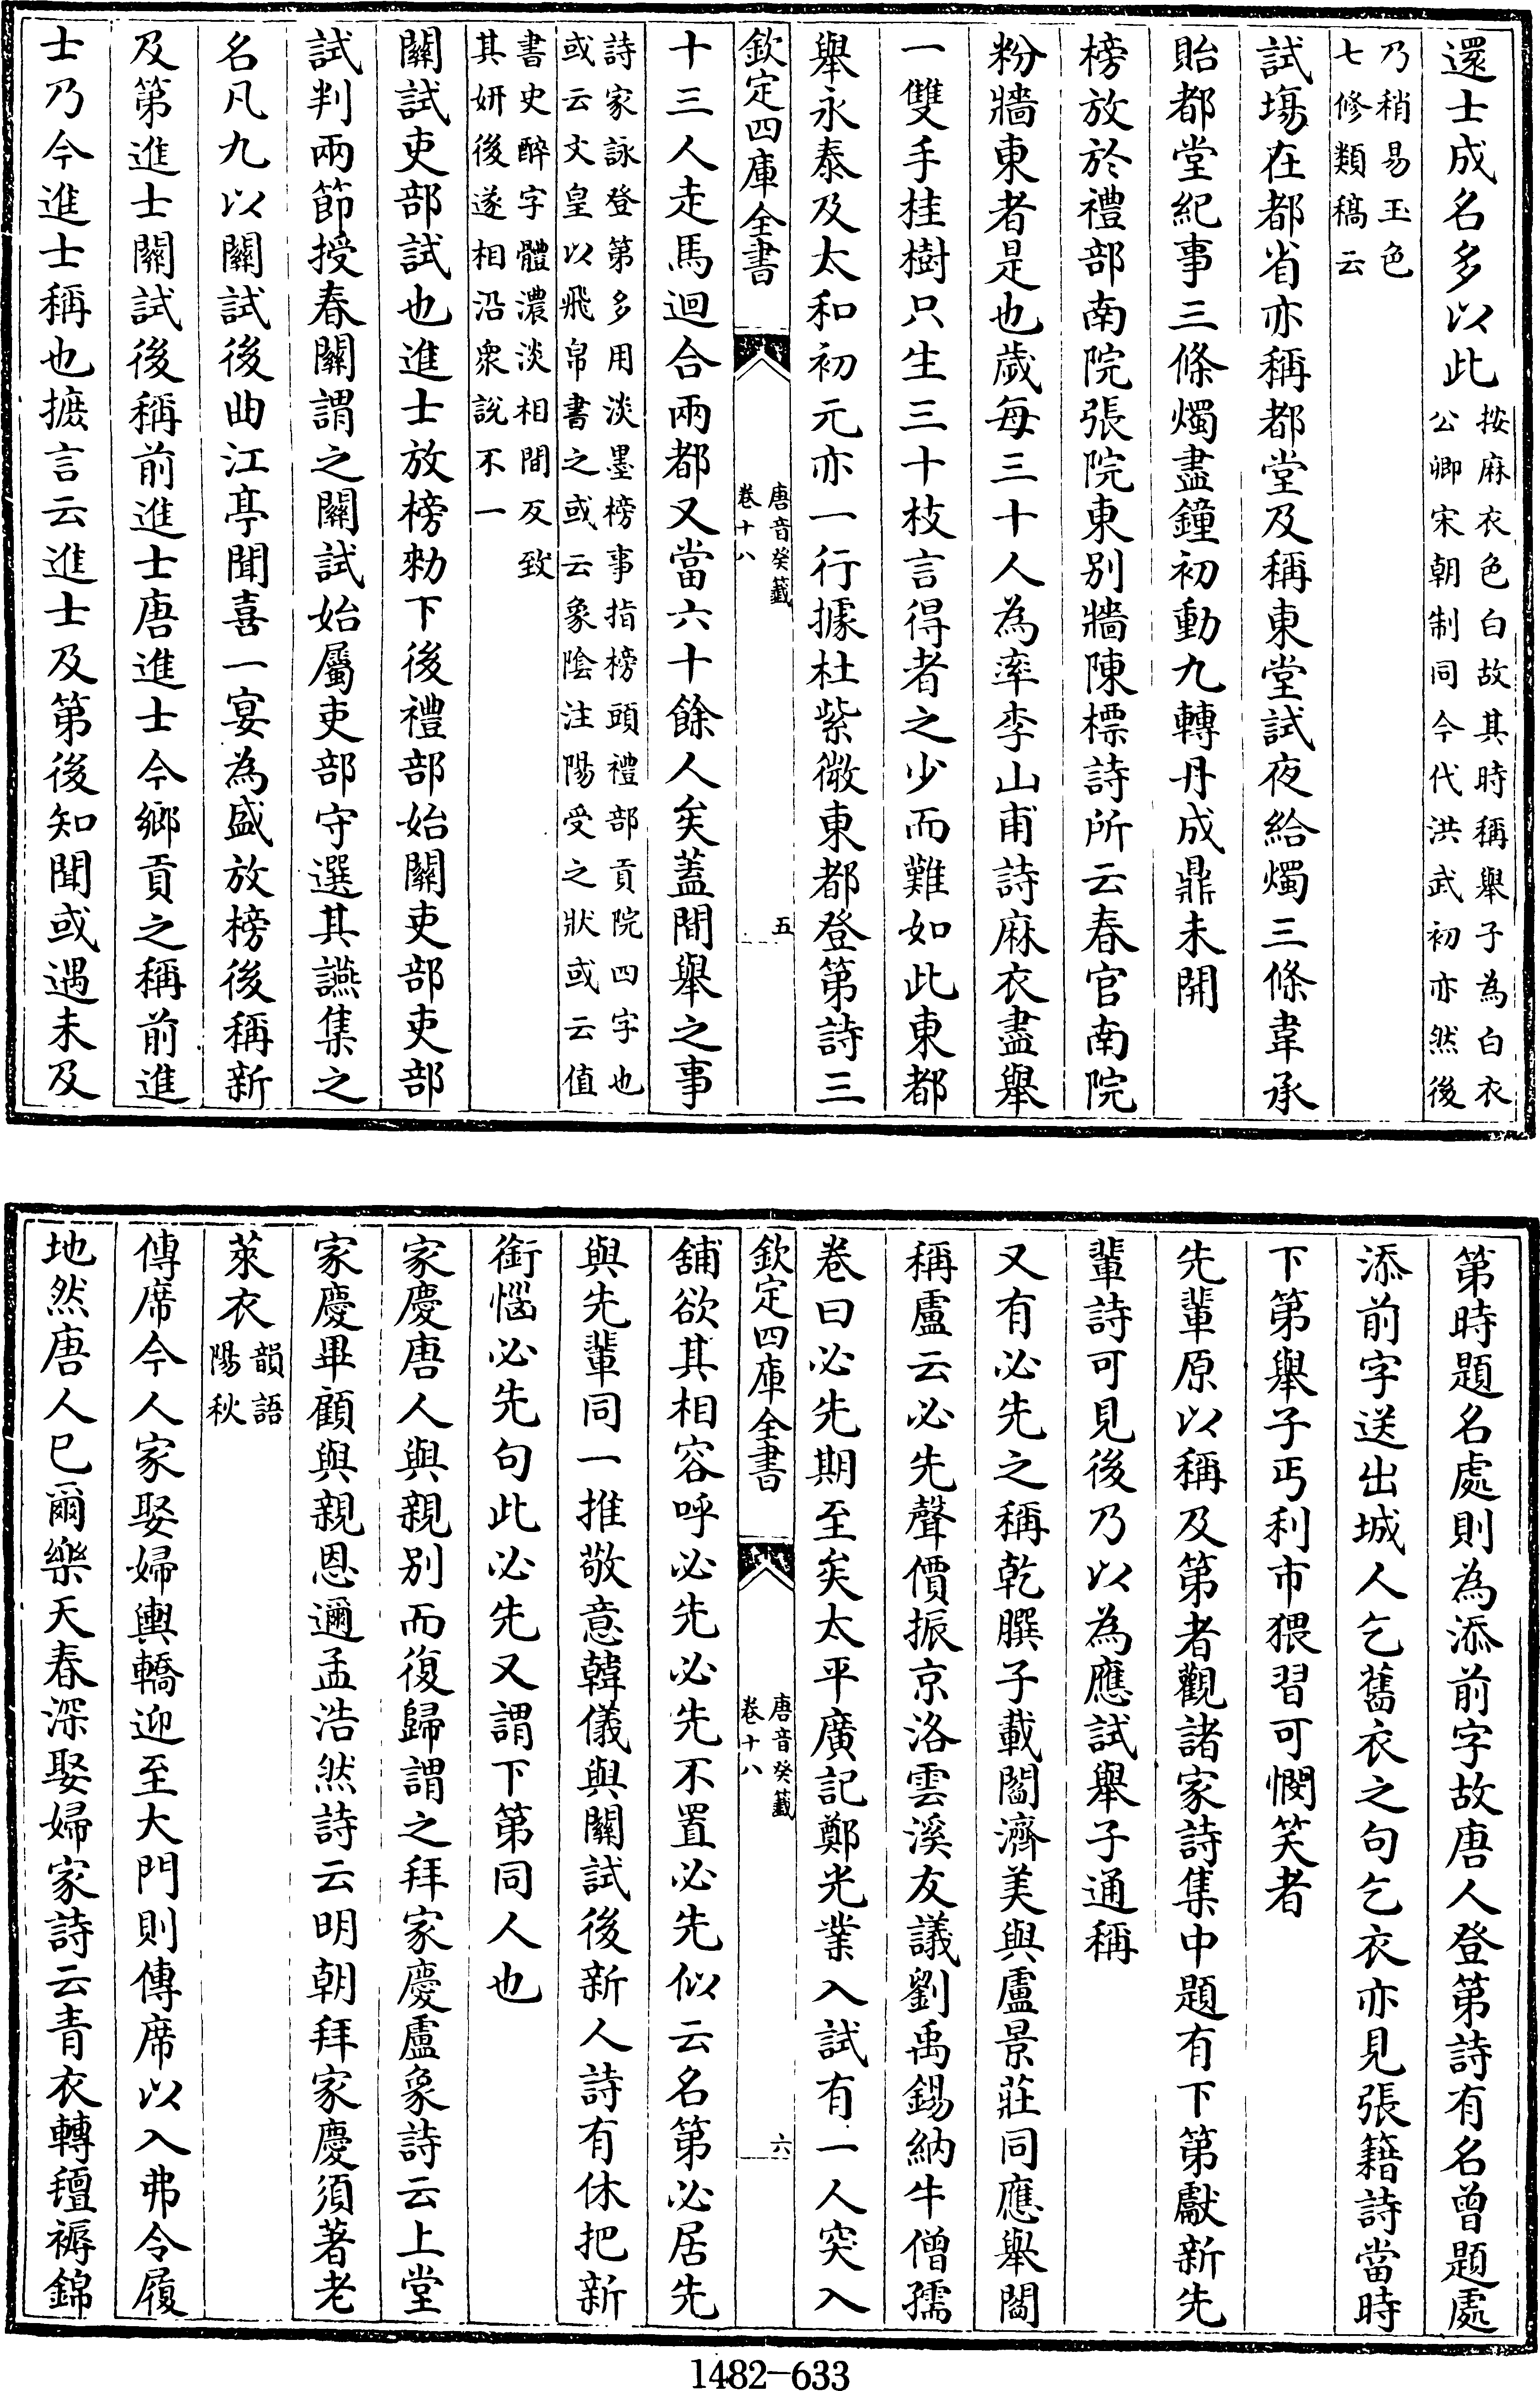 還士成名多以此按麻衣色白故其時稱舉子為白衣公卿宋朝制同今代洪武初亦然後
乃稍易玉色七修類稿云
試場在都省亦稱都堂及稱東堂試夜給燭三條韋承
貽都堂紀事三條燭盡鐘初動九轉丹成鼎未開
榜放於禮部南院張院東別牆陳標詩所云春官南院
粉牆東者是也歲每三十人為率李山甫詩麻衣盡舉
一雙手桂樹只生三十枝言得者之少而難如此東都
舉永泰及太和初元亦一行據杜紫微東都登第詩三
欽定四庫全書 唐音癸籤卷十八 五
十三人走馬迴合兩都又當六十餘人矣蓋間舉之事
詩家詠登第多用淡墨榜事指榜頭禮部貢院四字也或云文皇以飛帛書之或云象陰注陽受之狀或云值
書史醉字體濃淡相間反致其妍後遂相沿衆說不一
關試吏部試也進士放榜勑下後禮部始關吏部吏部
試判兩節授春關謂之關試始屬吏部守選其讌集之
名凡九以關試後曲江亭聞喜一宴為盛放榜後稱新
及第進士關試後稱前進士唐進士今鄉貢之稱前進
士乃今進士稱也摭言云進士及第後知聞或遇未及
第時題名處則為添前字故唐人登第詩有名曾題處
添前字送出城人乞舊衣之句乞衣亦見張籍詩當時
下第舉子丐利市猥習可憫笑者
先輩原以稱及第者觀諸家詩集中題有下第獻新先
輩詩可見後乃以為應試舉子通稱
又有必先之稱乾𦠆子載閻濟美與盧景莊同應舉閻
稱盧云必先聲價振京洛雲溪友議劉禹錫納牛僧孺
卷曰必先期至矣太平廣記鄭光業入試有一人突入
欽定四庫全書 唐音癸籤卷十八 六
舖欲其相容呼必先必先不置必先似云名第必居先
與先輩同一推敬意韓儀與關試後新人詩有休把新
銜惱必先句此必先又謂下第同人也
家慶唐人與親別而復歸謂之拜家慶盧象詩云上堂
家慶畢顧與親恩邇孟浩然詩云明朝拜家慶須著老
萊衣韻語陽秋
傳席今人家娶婦輿轎迎至大門則傳席以入弗令履
地然唐人已爾樂天春深娶婦家詩云青衣轉氊褥錦
1482-633